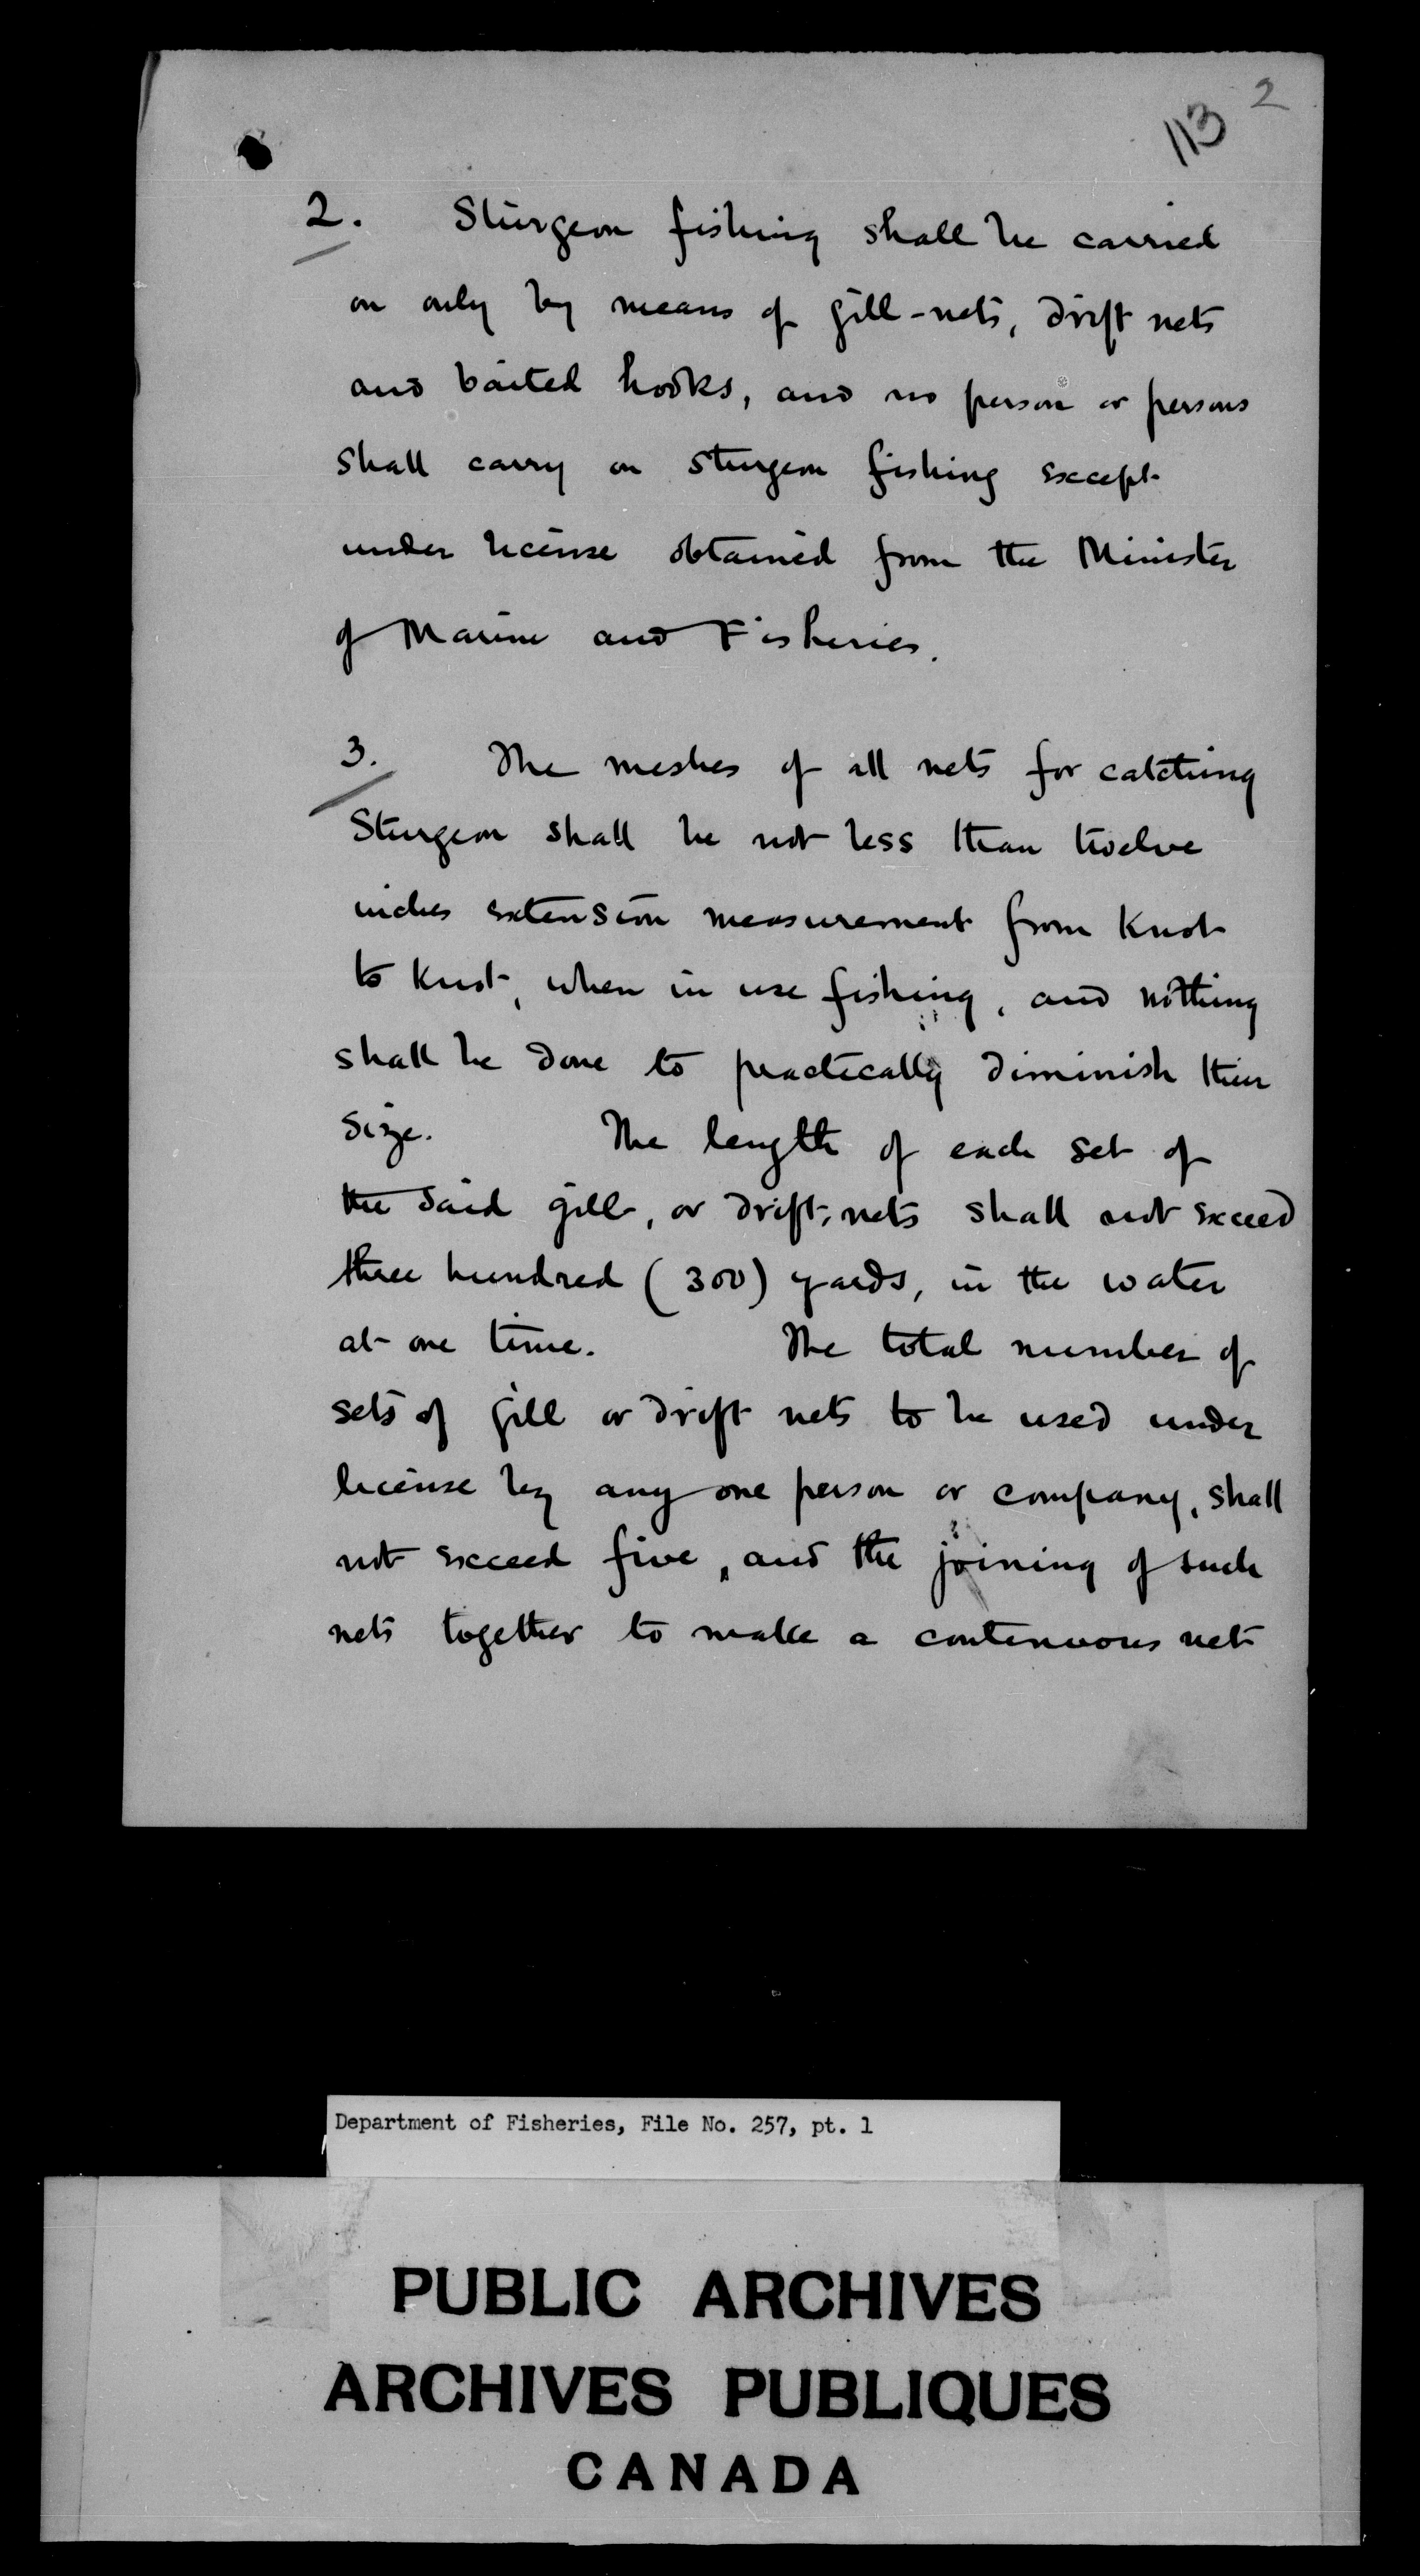 113 2
2. Sturgeon fishing shall be carried
on only by means of gill-nets, drift nets
and baited hooks, and no person or persons
shall carry on sturgeon fishing except
under license obtained from the Minister
of Marine and Fisheries.
3. The meshes of all nets for catching
Sturgeon shall be not less than twelve
inches extension measurement from Knot
to Knot, when in use fishing, and nothing
shall be done to practically diminish their
size. The length of each set of
the said gill, or drift-nets shall not exceed
three hundred (300) yards, in the water
at one time. The total number of
sets of gill or drift nets to be used under
license by any one person or company, shall
not exceed five, and the joining of such
nets together to make a continuous net
Department of Fisheries, File No. 257, pt. 1
PUBLIC ARCHIVES
ARCHIVES PUBLIQUES
CANADA